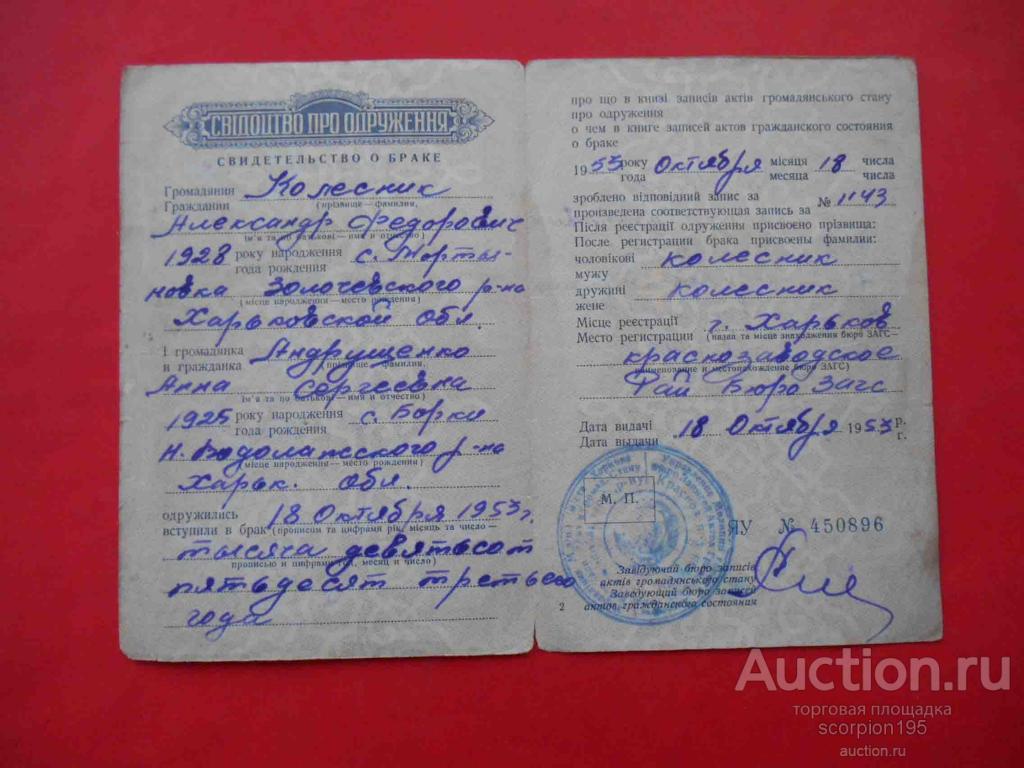 СВІДОЦТВО ПРО ОДРУЖЕННЯ
СВИДЕТЕЛЬСТВО О БРАКЕ
Громадянин Колесник
Гражданин (прізвище—фамилия,
Александр Федорович
ім'я та по батькові—имя и отчество)
1928 року народження с. Марты-
года рождения
новка Золочевского р-на
(місце народження—место рождения)
Харьковской обл.
і громадянка Андрущенко
и гражданка (прізвище—фамилия,
Анна Сергеевна
ім'я та по батькові—имя и отчество)
1925 року народження с. Борки
года рождения
Н. Водолажского р-на
(місце народження—место рождения)
Харьк. обл.
одружились 18 октября 1953 г.
вступили в брак (прописом та цифрами рік, місяць та число—
тысяча девятьсот
прописью и цифрами год, месяц и число)
пятьдесят третьего
года
про що в книзі записів актів громадянського стану
про одруження
о чем в книге записей актов гражданского состояния
о браке
1953 року Октября місяця 18 числа
года месяца числа
зроблено відповідний запис за № 1143
произведена соответствующая запись за
Після реєстрації одруження присвоєно прізвища:
После регистрации брака присвоены фамилии:
чоловікові Колесник
мужу
дружині Колесник
жене
Місце реєстрації г. Харьков
Место регистрации (назва та місце знаходження бюро ЗАГС—
краснозаводское
наименование и местонахождение бюро ЗАГС)
Рай Бюро Загс
Дата видачі 18 Октября 1953 р.
Дата выдачи г.
М. П.
ЯУ № 450896
Завідуючий бюро записів
актів громадянського стану
Заведующий бюро записей
актов гражданского состояния
2
Auction.ru
торговая площадка
scorpion195
auction.ru